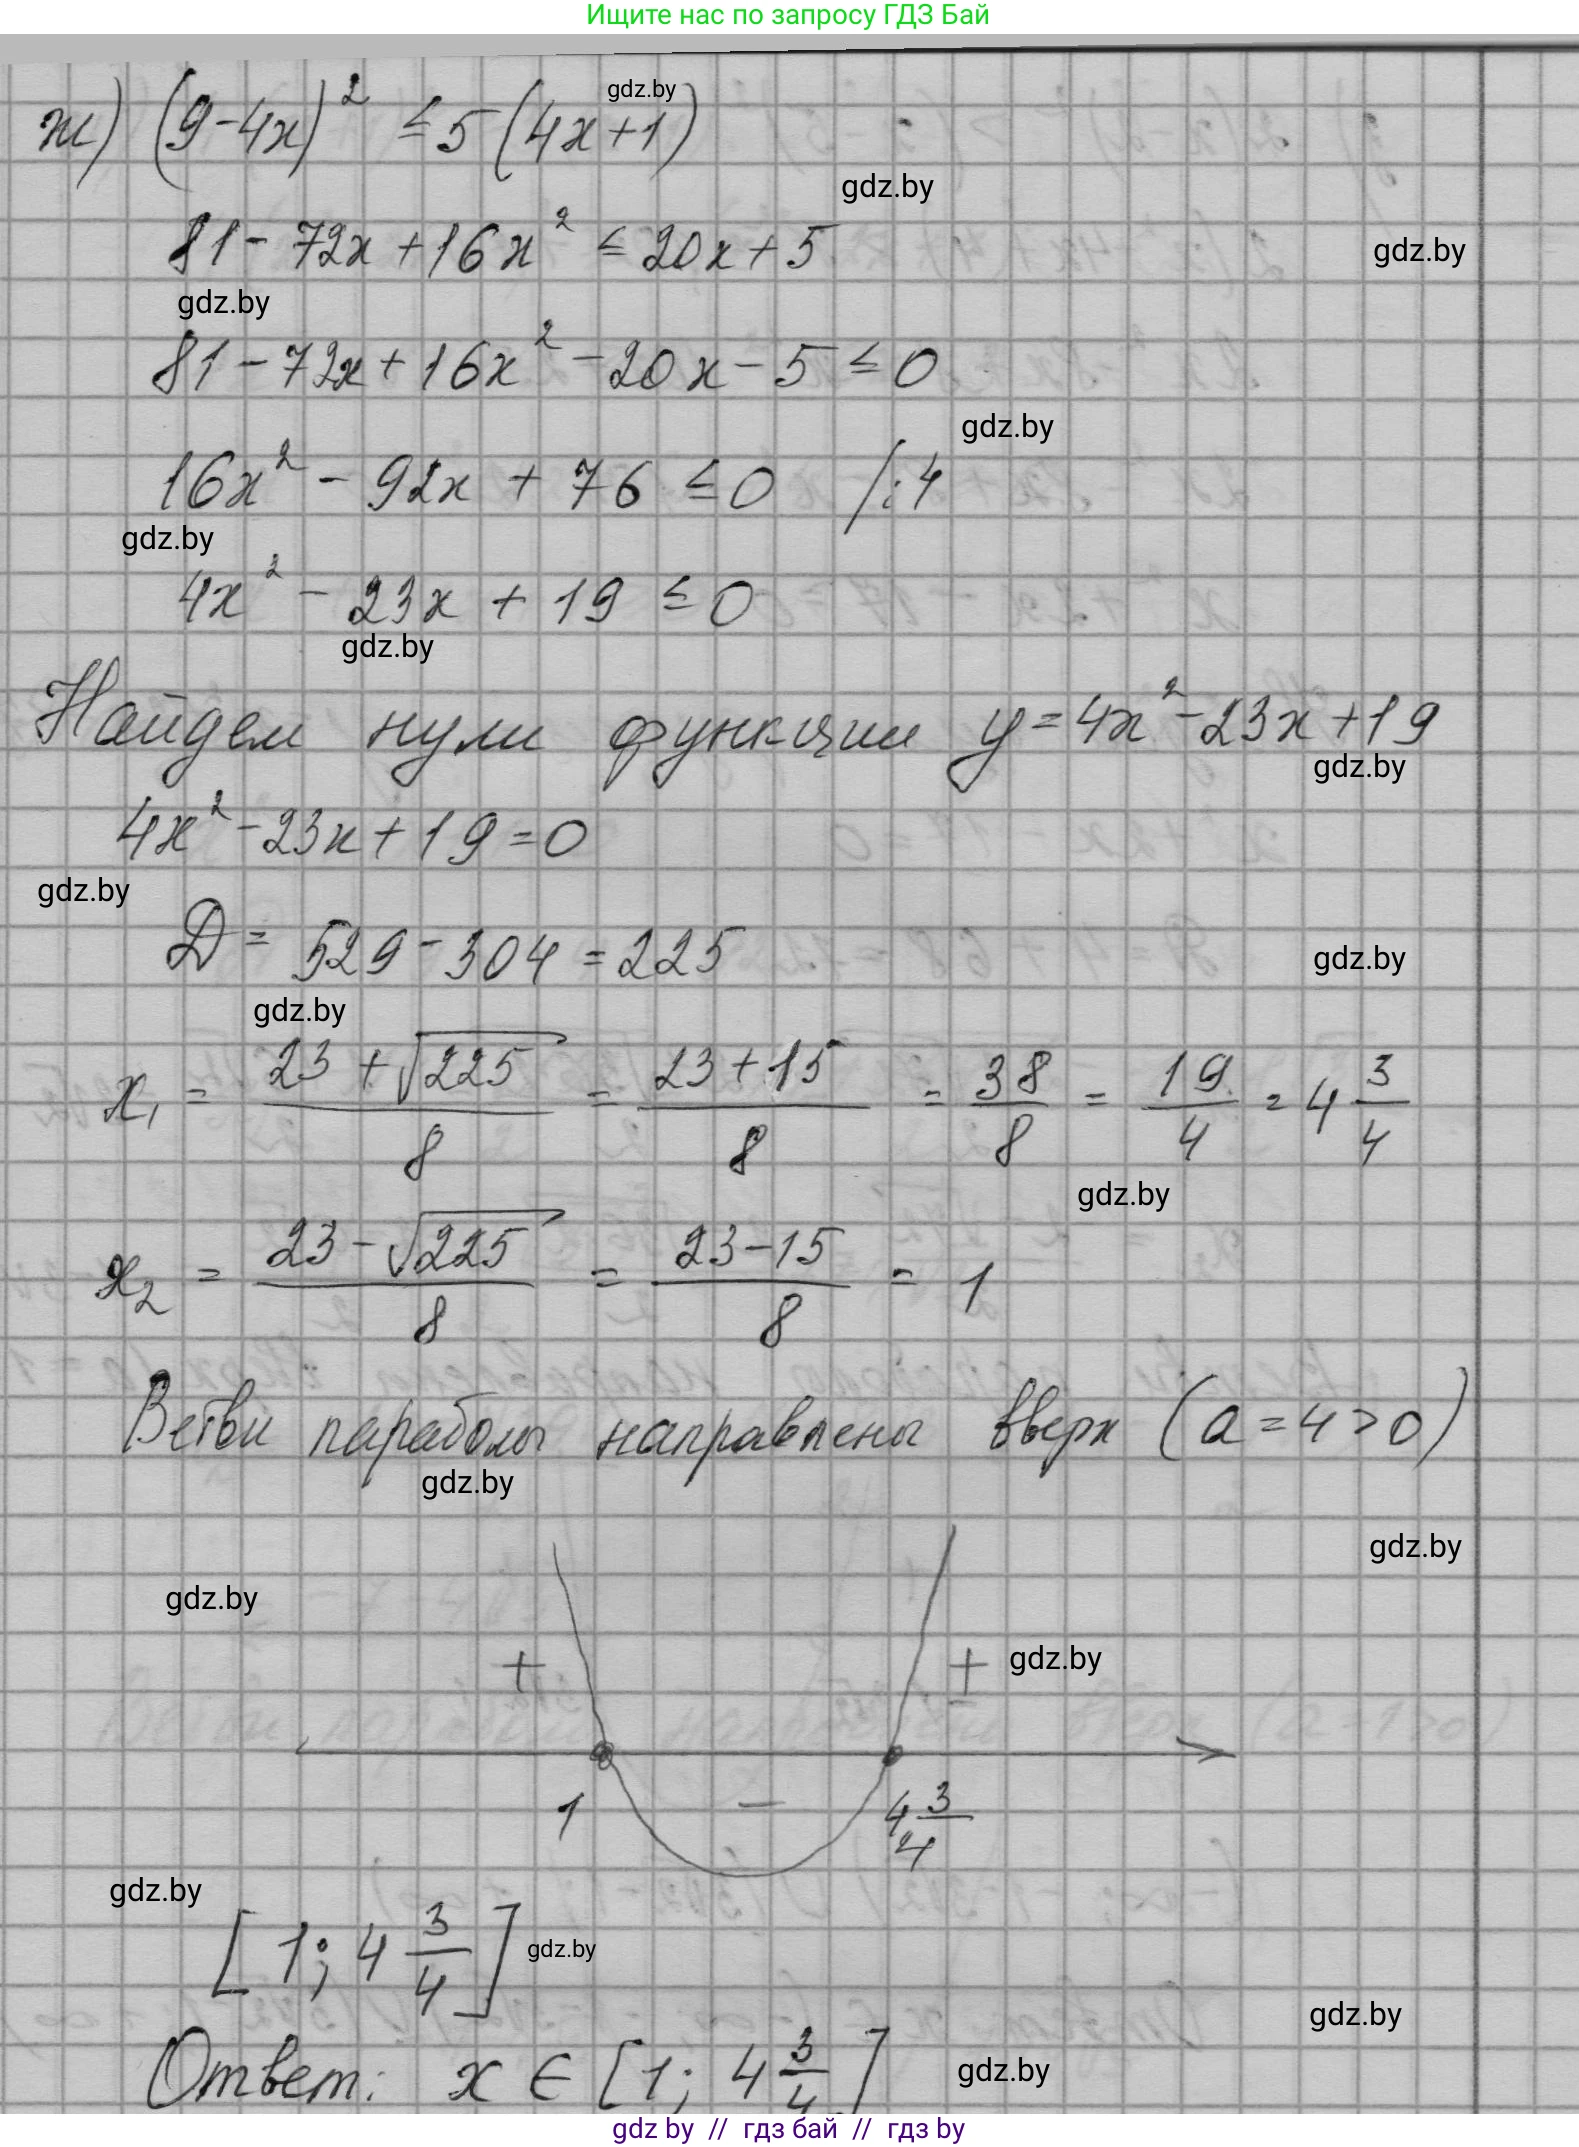 Ищите нас по запросу ГДЗ Бай
ж) (9-4x)² ≤ 5(4x+1)
gdz.by
gdz.by
81 - 72x + 16x² ≤ 20x + 5
gdz.by
gdz.by
81 - 72x + 16x² - 20x - 5 ≤ 0
gdz.by
16x² - 92x + 76 ≤ 0 /:4
gdz.by
4x² - 23x + 19 ≤ 0
gdz.by
Найдем нули функции y = 4x² - 23x + 19
gdz.by
4x² - 23x + 19 = 0
gdz.by
D = 529 - 304 = 225
gdz.by
gdz.by
x₁ = (23 + √225)/8 = (23 + 15)/8 = 38/8 = 19/4 = 4 3/4
gdz.by
x₂ = (23 - √225)/8 = (23 - 15)/8 = 1
Ветви параболы направлены вверх (a = 4 > 0)
gdz.by
gdz.by
gdz.by
+ +
gdz.by
1 - 4 3/4
gdz.by
[1; 4 3/4]
gdz.by
gdz.by
Ответ: x ∈ [1; 4 3/4]
gdz.by
gdz by // гдз бай // гдз by